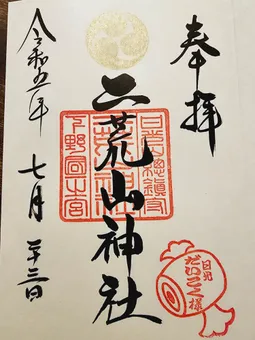 奉拝
二荒山神社
日光総鎮守
下野國一宮
日光
だいこく様
令和五年
七月
二十三日